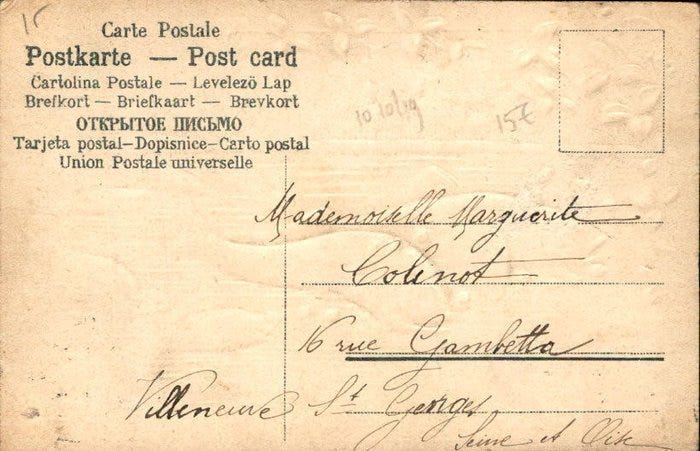 15
Carte Postale
Postkarte — Post card
Cartolina Postale — Levelező Lap
Brefkort — Briefkaart — Brevkort
ОТКРЫТОЕ ПИСЬМО
Tarjeta postal—Dopisnice—Carto postal
Union Postale universelle
10 10/19
15€
Mademoiselle Marguerite
Colinot
16 rue Gambetta
Villeneuve St Georges
Seine et Oise